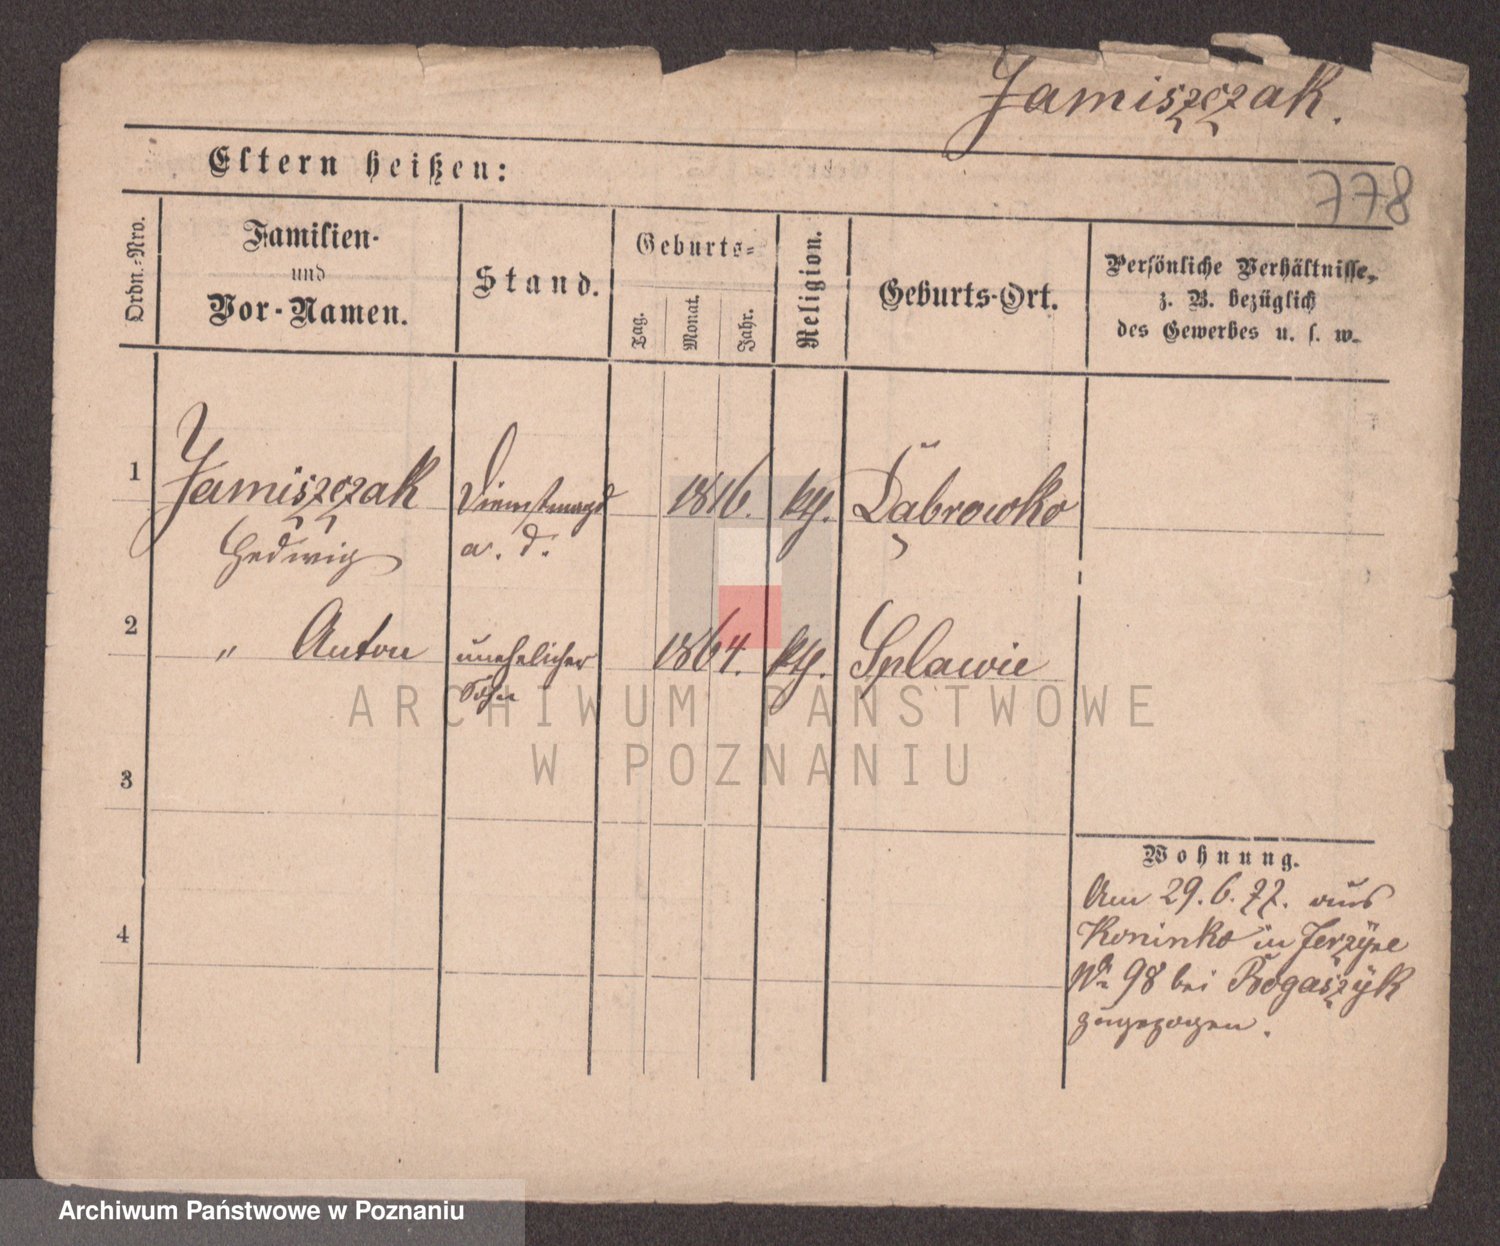 Jamiszczak.
778
Eltern heißen:
Ordn.-Nro.
Familien-
und
Vor-Namen.
Stand.
Geburts-
Tag.
Monat.
Jahr.
Religion.
Geburts-Ort.
Persönliche Verhältnisse,
z. B. bezüglich
des Gewerbes u. s. w.
1 Jamiszczak Dienstmagd 1816. kth. Dąbrowko
Hedwig a. d.
2 " Anton unehelicher 1864. kth. Splawie
Sohn
3
4
Wohnung.
Am 29. 6. 77. aus
Koninko in Jerzyce
No 98 bei Rogaszyk
zugezogen.
ARCHIWUM PAŃSTWOWE
W POZNANIU
Archiwum Państwowe w Poznaniu